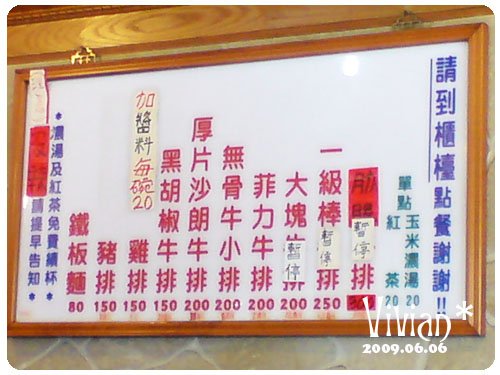 請到櫃檯點餐謝謝!!
單點玉米濃湯20
紅茶20
排
暫停
一級棒 排 250
暫停
大塊牛排 200
暫停
菲力牛排 200
無骨牛小排 200
厚片沙朗牛排 200
黑胡椒牛排 150
加醬料每碗20
雞排 150
豬排 150
鐵板麵 80
*濃湯及紅茶免費續杯*
請提早告知*
Vivian*
2009.06.06